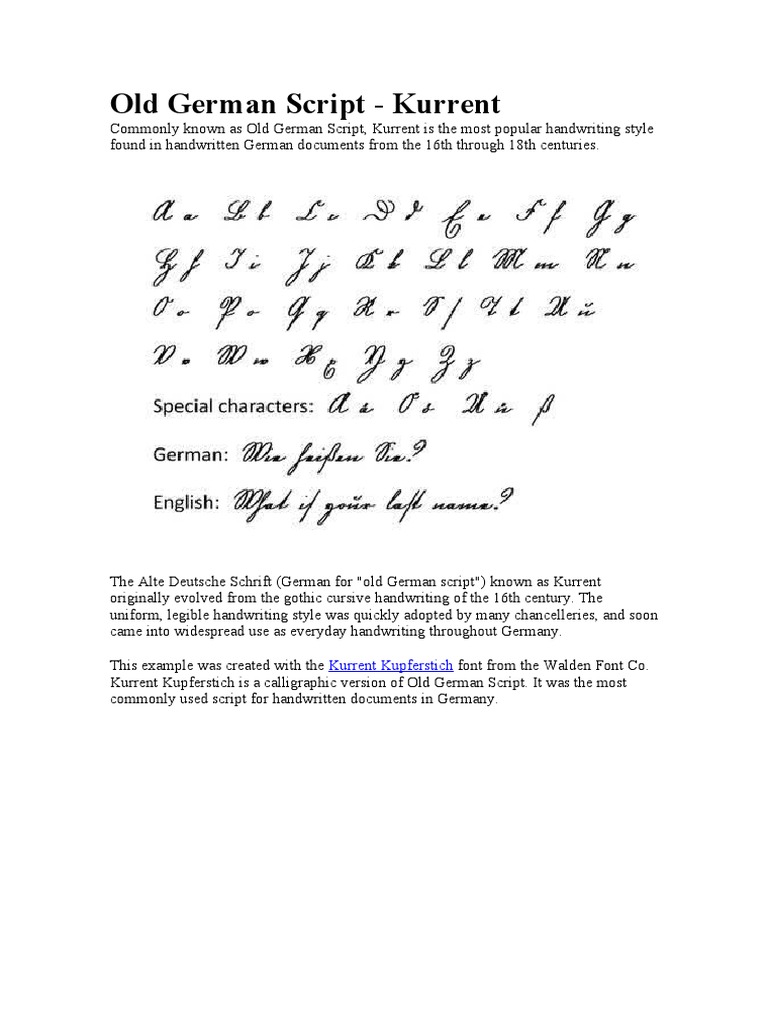 Old German Script - Kurrent
Commonly known as Old German Script, Kurrent is the most popular handwriting style
found in handwritten German documents from the 16th through 18th centuries.
A a B b C c D d E e F f G g
H h I i J j K k L l M m N n
O o P p Q q R r S s T t U u
V v W w X x Y y Z z
Special characters: Ä ä Ö ö Ü ü ß
German: Wie heißen Sie?
English: What is your last name?
The Alte Deutsche Schrift (German for "old German script") known as Kurrent
originally evolved from the gothic cursive handwriting of the 16th century. The
uniform, legible handwriting style was quickly adopted by many chancelleries, and soon
came into widespread use as everyday handwriting throughout Germany.
This example was created with the Kurrent Kupferstich font from the Walden Font Co.
Kurrent Kupferstich is a calligraphic version of Old German Script. It was the most
commonly used script for handwritten documents in Germany.